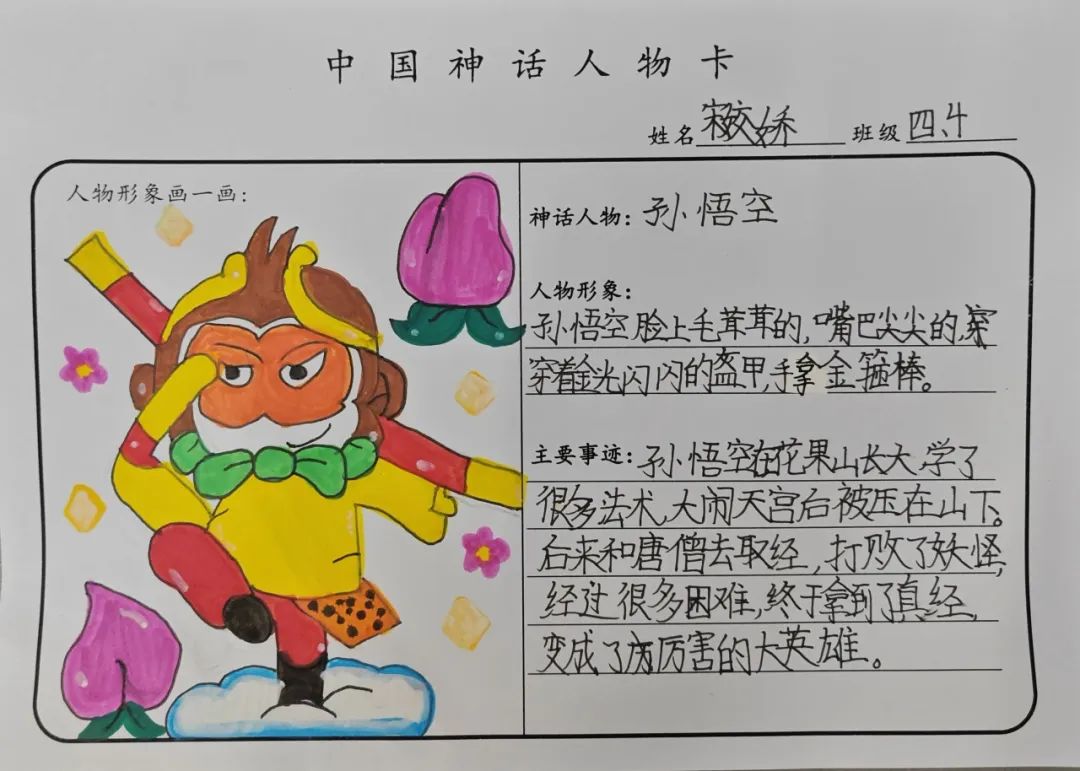 中国神话人物卡
姓名 班级 四、4
人物形象画一画：
神话人物：孙悟空
人物形象：
孙悟空脸上毛茸茸的，嘴巴尖尖的，穿
穿着金光闪闪的盔甲，手拿金箍棒。
主要事迹：孙悟空在花果山长大，学了
很多法术，大闹天宫后被压在山下。
后来和唐僧去取经，打败了妖怪，
经过很多困难，终于拿到了真经，
变成了厉害的大英雄。